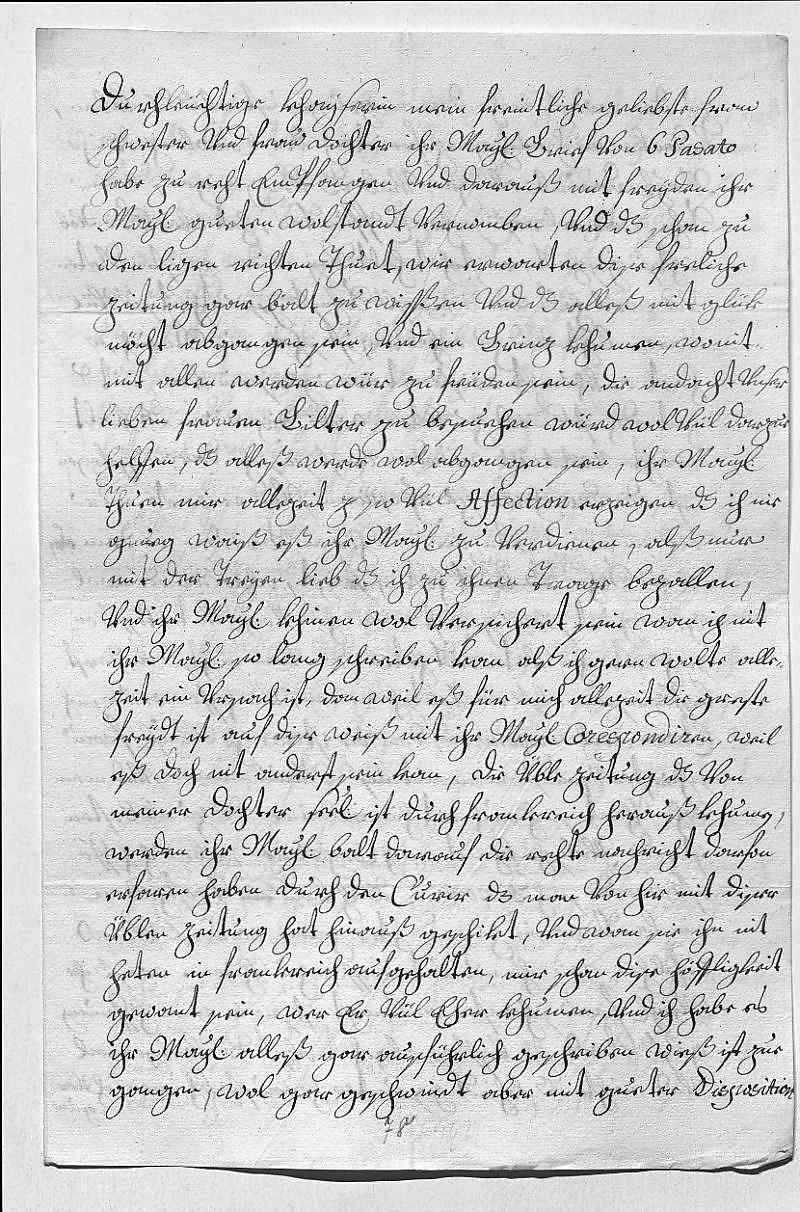 Durchleüchtige khayserin mein freintliche geliebste fraw
schwester Vnd fraw Dochter ihr Mayl. Brief Von 6 Pasato
habe zu reht Empfangen Vnd darauß mit freyden ihr
Mayl. gueten wolstandt Vernomben, Vnd dß schan zu
den ligen richten Thuet, wir erwarten dise freliche
zeitung gar balt zu wissen Vnd dß alleß mit glük
möcht abgangen sein, Vnd ein Brinz khumen, womit
mit allen werden wür zu friden sein, die andacht Vnser
lieben frauen Bilter zu besuchen würd wol Vül darzue
helffen, dß alleß werde wol abgangen sein, ihr Mayl.
Thuen mir allezeit so Vül Affection erzeigen dß ich nie
genueg waiß eß ihr Mayl. zu Verdienen, alß nur
mit der Treyen lieb dß ich zu ihnen Trage bezallen,
Vnd ihr Mayl. khinen wol Versichert sein wan ich nit
ihr Mayl. so lang schreiben kan alß ich gern wolte alle-
zeit ein Vrsach ist, dan weil eß für mich allezeit die greste
freydt ist auf dise weiß mit ihr Mayl. Corespondiren, weil
eß doch nit anderst sein kan, die Üble zeitung dß Von
meiner Dochter seel. ist durch frankreich herauß khumen,
werden ihr Mayl. balt darauf die rechte nachricht darfon
erfaren haben durch den Curir dß man Von hir mit diser
Üblen zeitung hat hinauß geschikt, Vnd wan sie ihn nit
heten in frankreich aufgehalten, mir schan dise höffligkeit
gewont sein, wer Er Vül Eher khumen, Vnd ich habe es
ihr Mayl. alleß gar ausführlich geschriben wieß ist zue
gangen, wol gar geschwindt aber mit gueter Disposition
78